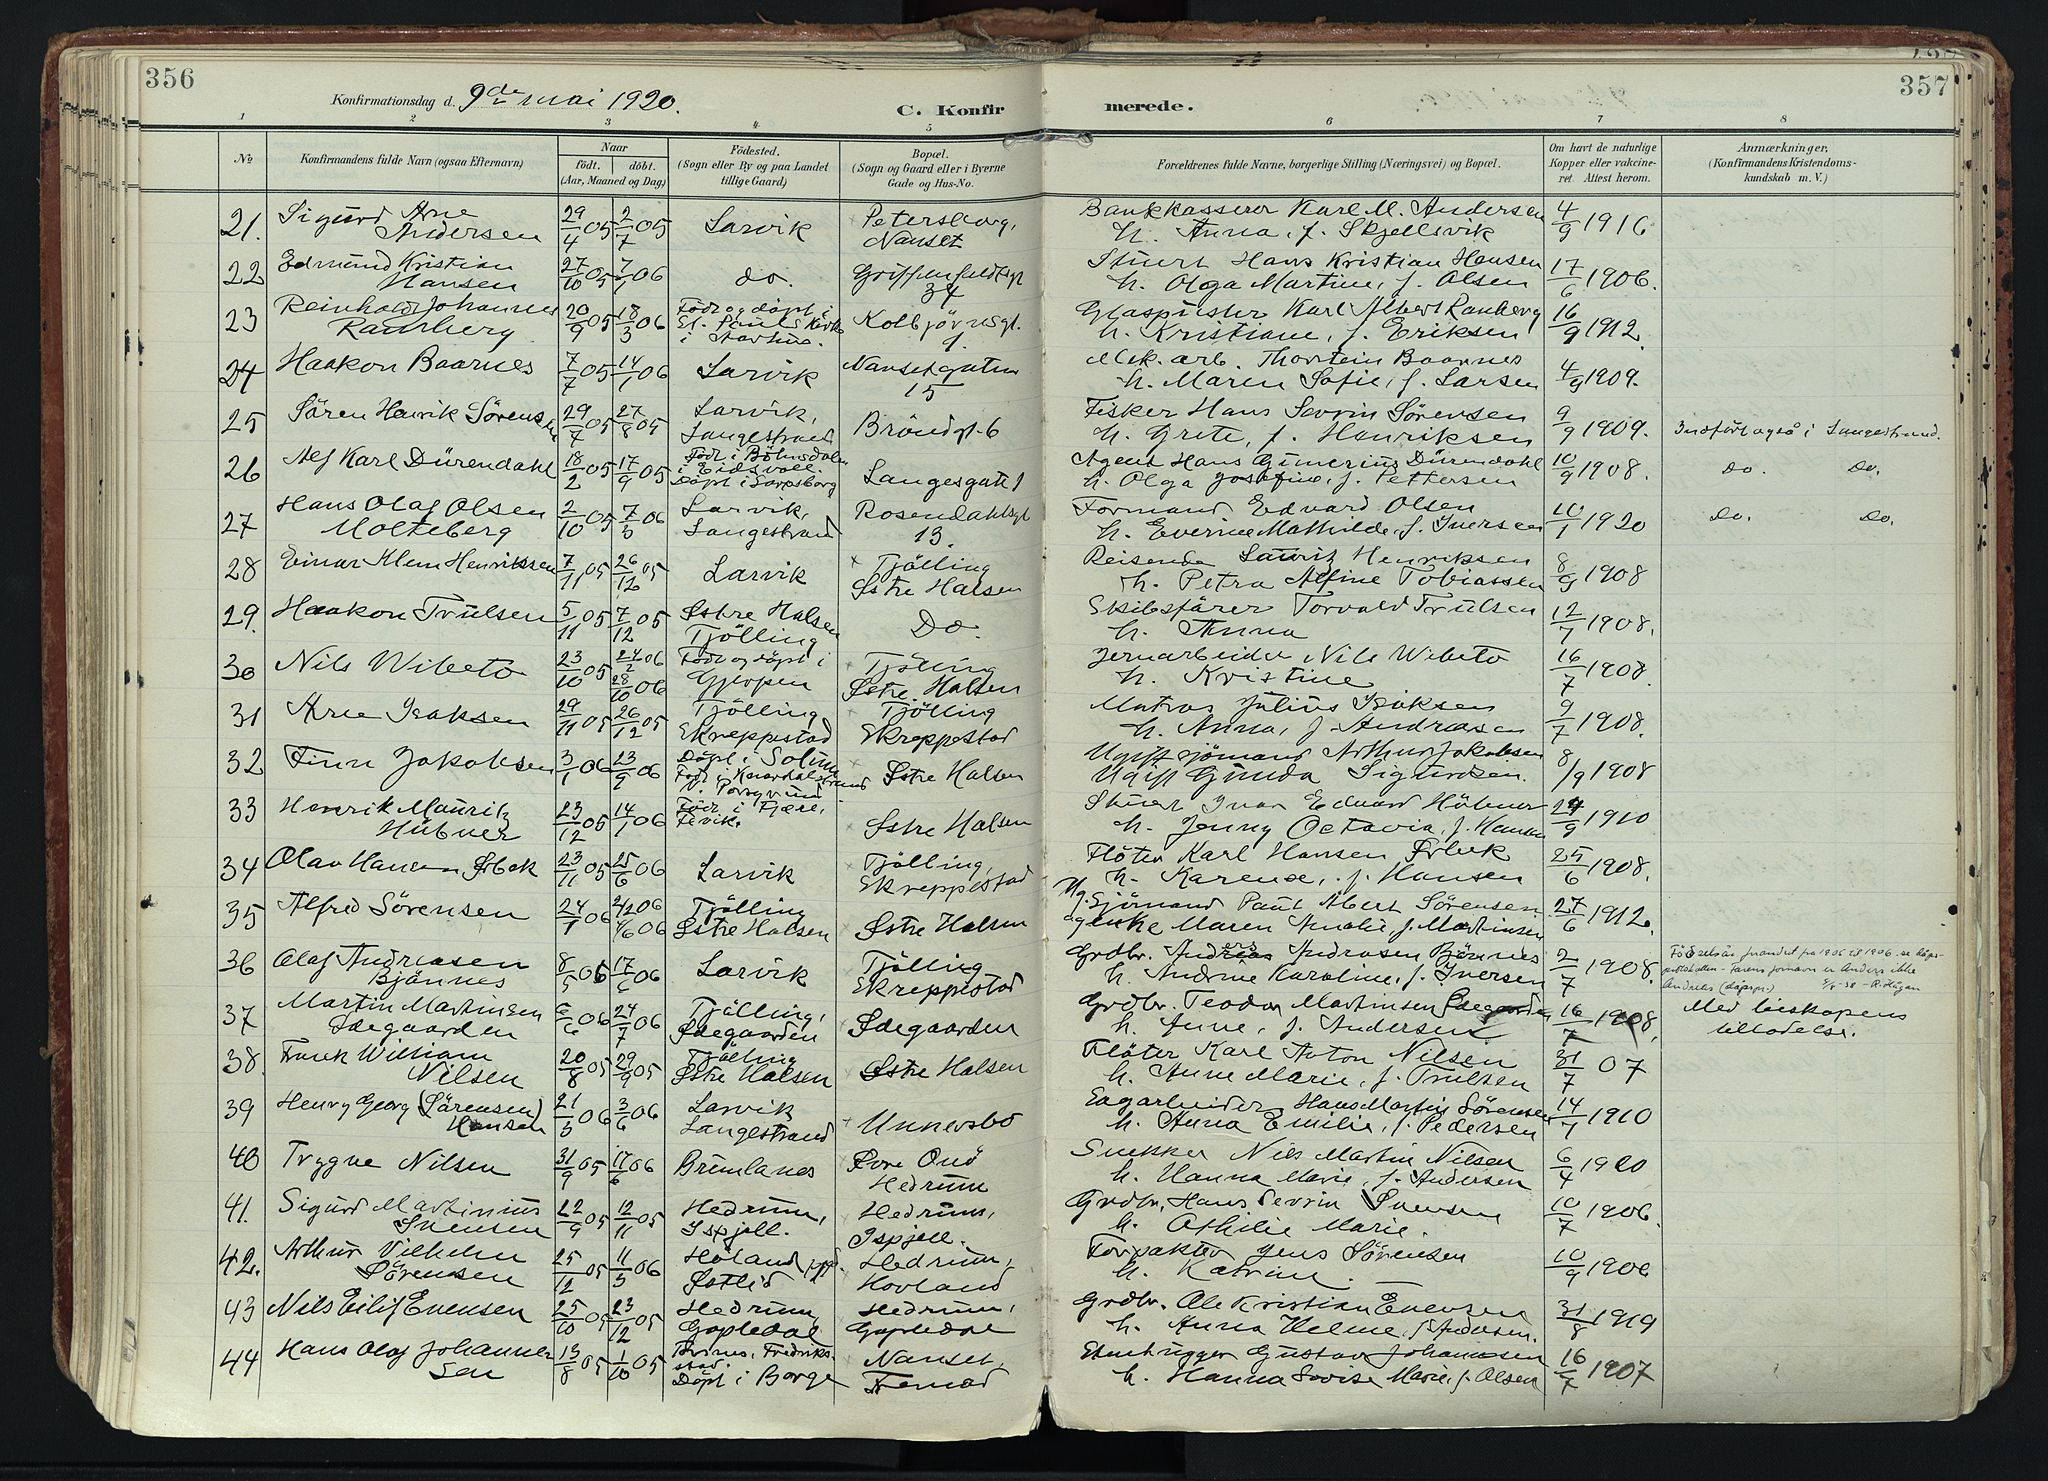 356
357
Konfirmationsdag d. 9de mai 1920.
C. Konfirmerede.
1 2 3 4 5 6 7 8
No
Konfirmandens fulde Navn (ogsaa Efternavn)
Naar
födt. döbt.
(Aar, Maaned og Dag)
Födested.
(Sogn eller By og paa Landet
tillige Gaard)
Bopæl.
(Sogn og Gaard eller i Byerne
Gade og Hus-No.
Forældrenes fulde Navne, borgerlige Stilling (Næringsvei) og Bopæl.
Om havt de naturlige
Kopper eller vakcine-
ret Attest herom.
Anmærkninger.
(Konfirmandens Kristendoms-
kundskab m. V.)
21. Sigurd Arne 29/4 05 2/7 05 Larvik Petersborg, Bankkasserer Karl M. Andersen 4/9 1916
Andersen Nanset h. Anna, f. Skjellsvik
22 Edmund Kristian 27/10 05 7/1 06 do. Griffenfeldtsgt Stuert Hans Kristian Hansen 17/6 1906.
Hansen 34 h. Olga Martine, f. Olsen
23 Reinhold Johannes 20/9 05 18/3 06 Födt og döpt i Kolbjörnsgt. Glaspuster Karl Albert Ramberg 16/9 1912.
Ramberg St. Pauls Kirke 1 h. Kristiane, f. Eriksen
24 Haakon Baarnes 7/7 05 14/1 06 Larvik Nansetgaten Mek. arb. Thorstein Baarnes 4/9 1909.
15 h. Maren Sofie, f. Larsen
25 Sören Henrik Sörensen 29/7 05 27/8 05 Larvik, Bröndgt. 6 Fisker Hans Severin Sörensen 9/9 1909. Indfört også i Langestrand.
Langestrand h. Grete, f. Henriksen
26 Alf Karl Dürendahl 18/2 05 17/9 05 Födt i Böhnsdalen Langesgate 1 Agent Hans Gunerius Dürendahl 10/9 1908. Do. Do.
i Eidsvoll.
Döpt i Sarpsborg h. Olga Josefine, f. Pettersen
27 Hans Olaf Olsen 2/10 05 7/3 06 Larvik, Rosendahlsgt Formand Edvard Olsen 10/1 1920 Do. Do.
Molteberg Langestrand 13. h. Everine Mathilde, f. Iversen
28 Einar Klem Henriksen 7/11 05 26/12 05 Larvik Tjölling Reisende Lauritz Henriksen 8/9 1908
Østre Halsen h. Petra Alfine Tobiassen
29. Haakon Trulsen 5/11 05 7/12 05 Østre Halsen Do. Skibsförer Torvald Trulsen 12/7 1908.
Tjölling h. Anna
30 Nils Wibeto 23/10 05 24/2 06 Födt og döpt i Tjölling Jernarbeider Nils Wibeto 16/7 1908.
28/10 06 Gjerpen Østre Halsen h. Kristine
31 Arne Isaksen 29/11 05 26/12 05 Tjölling Tjölling Matros Julius Isaksen 9/7 1908.
Skreppestad Skreppestad h. Anna, f. Andreasen
32 Finn Jakobsen 3/1 06 23/9 06 Döpt i Solum Østre Halsen Ugift sjömand Arthur Jakobsen 8/9 1908
Ugift Gunda Sigurdsen.
33 Henrik Mauritz 23/12 05 14/1 06 Födt i Fjære, Østre Halsen Stuert Ivar Edvard Hübner 24/9 1910
Hübner Fevik. h. Jenny Octavia, f. Hansen
34 Olav Hansen Ørbek 23/11 05 25/6 06 Larvik Tjölling, Flöter Karl Hansen Ørbek 25/6 1908.
Skreppestad h. Karense, f. Hansen
35 Alfred Sörensen 24/1 06 4/2 06 Tjölling Østre Halsen Ug. Sjömand Paul Albert Sörensen 27/6 1912.
4/6 06 Østre Halsen og enke Maren Amalie f. Martinsen
36 Olaf Andreasen 8/5 06 17/6 06 Larvik Tjölling Grdbr. Anders Andreasen Bjönnes 2/7 1908.
Bjönnes Skreppestad h. Andrine Karoline, f. Iversen
Födselsår forandret fra 1905 til 1906. se dåps-
protokollen - Farens fornavn er Anders ikke
Andreas (dåpspr.) - R. Haugan
37 Martin Martinsen 6/6 06 24/7 06 Tjölling, Ødegaarden Grdbr. Teodor Martinsen Ødegaarden 16/7 1908, Med biskopens
Ødegaarden Ødegaarden h. Anne, f. Andersen tilladelse.
38. Frank William 20/8 05 29/9 05 Tjölling Østre Halsen Flöter Karl Anton Nilsen 31/7 07
Nilsen Østre Halsen h. Anne Marie, f. Trulsen
39 Henry Georg (Sörensen) 21/3 06 3/6 06 Larvik Unnersbo Sagarbeider Hans Martin Sörensen 14/7 1910
Hansen Langestrand h. Anna Emilie, f. Pedersen
40 Trygve Nilsen 31/9 05 17/6 06 Brunlanes Øvre Onö Snekker Nils Martin Nilsen 6/4 1920
Hedrum h. Hanna Marie, f. Andersen
41. Sigurd Martinius 22/9 05 12/11 05 Hedrum, Hedrum, Grdbr. Hans Severin Svensen 10/7 1906.
Svensen Ispjell. Ispjell. h. Othilie Marie.
42. Arthur Vilhelm 25/12 05 11/3 06 Höland Hedrum, Forpakter Jens Sörensen 10/9 1906
Sörensen Østlid Hovland h. Katrine.
43 Nils Eilif Evensen 25/10 05 23/12 05 Hedrum, Hedrum, Grdbr. Ole Kristian Evensen 31/8 1919
Gopledal Gopledal h. Anna Helene, f. Andersen.
44 Hans Olaf Johanne- 13/8 05 1/10 05 Nanset, Stenhugger Gustav Johannesen 16/7 1907
sen Döpt i Borge Fremad h. Hanna Lovise Marie, f. Olsen